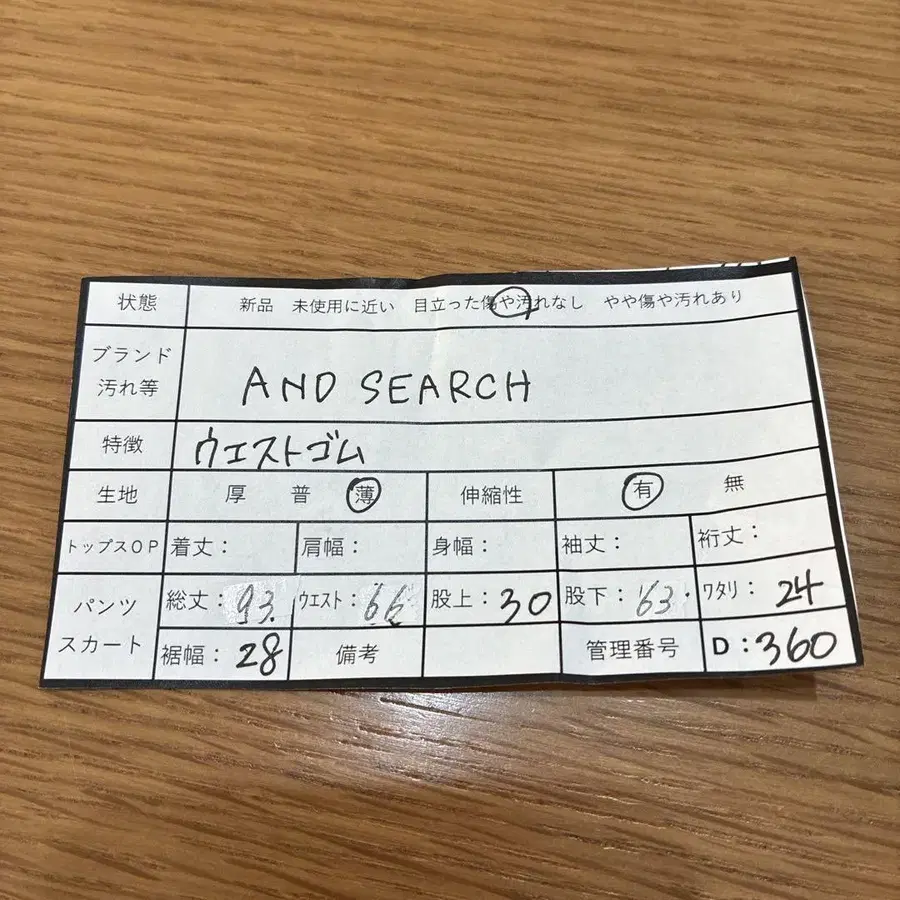 状態 新品 未使用に近い 目立った傷や汚れなし やや傷や汚れあり
ブランド
汚れ等 AND SEARCH
特徴 ウエストゴム
生地 厚 普 薄 伸縮性 有 無
トップスOP 着丈: 肩幅: 身幅: 袖丈: 裄丈:
パンツ
スカート
総丈: 93. ウエスト: 66 股上: 30 股下: 63. ワタリ: 24
裾幅: 28 備考 管理番号 D:360